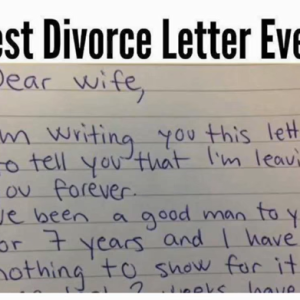 est Divorce Letter Eve
Dear wife,
m writing you this lett
to tell you that I'm leavi
you forever.
ve been a good man to y
or 7 years and I have
nothing to show for it
2 weeks have